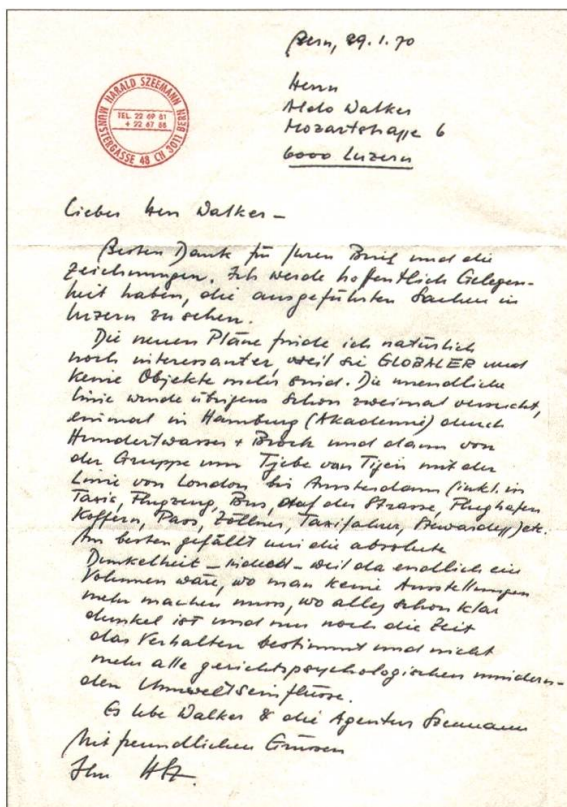 Bern, 29.1.70
HARALD SZEEMANN
MÜNSTERGASSE 48 CH 3011 BERN
TEL. 22 69 61
+ 22 67 88
Herrn
Aldo Walker
Mozartstrasse 6
6000 Luzern
Lieber Herr Walker –
Besten Dank für Ihren Brief und die
Zeichnungen. Ich werde hoffentlich Gelegen-
heit haben, die ausgeführten Sachen in
Luzern zu sehen.
Die neuen Pläne finde ich natürlich
noch interessanter, weil sie GLOBALER und
keine Objekte mehr sind. Die unendliche
Linie wurde übrigens schon zweimal versucht,
einmal in Hamburg (Akademie) durch
Hundertwasser + Brock und dann von
der Gruppe um Tjebe van Tijen mit der
Linie von London bis Amsterdam (inkl. in
Taxis, Flugzeug, Bus, auf der Strasse, Flughafen
Koffern, Pass, Zöllner, Taxifahrer, Stewardess) etc.
Am besten gefällt mir die absolute
Dunkelheit – – weil da endlich ein
Volumen wäre, wo man keine Ausstellungen
mehr machen muss, wo alles schon klar
dunkel ist und nur noch die Zeit
das Verhalten bestimmt und nicht
mehr alle
den Umwelteinflüsse.
Es lebe Walker & die Agentur Szeemann
Mit freundlichen Grüssen
Ihr HSz.